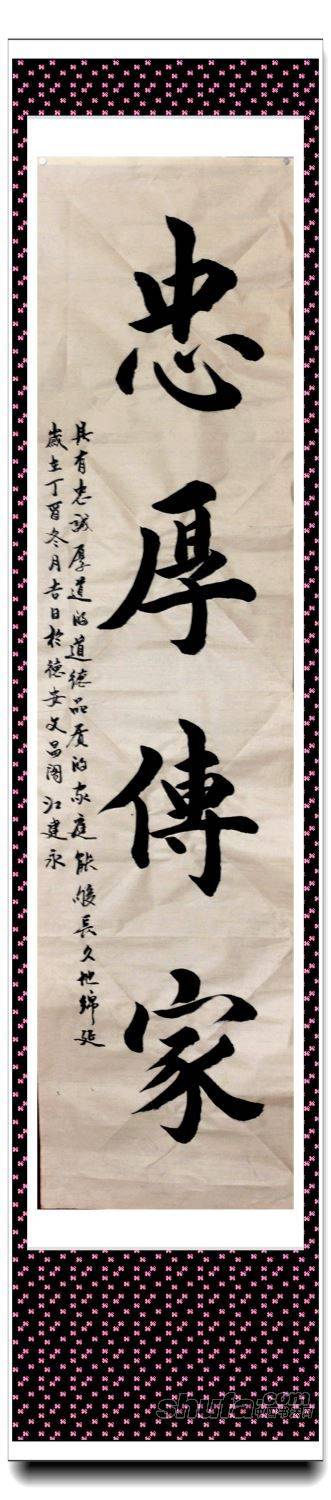 忠厚傳家
具有忠誠厚道的道德品质的家庭能够長久地绵延
歲在丁酉冬月吉日於德安文昌阁江建永
shufa